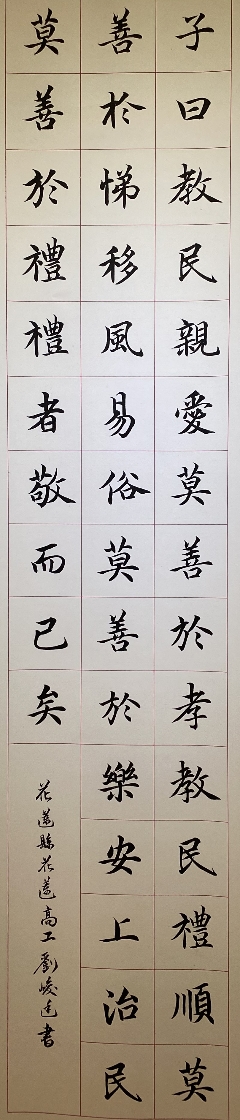 子曰教民親愛莫善於孝教民禮順莫
善於悌移風易俗莫善於樂安上治民
莫善於禮禮者敬而已矣
花蓮縣花蓮高工劉峻廷書